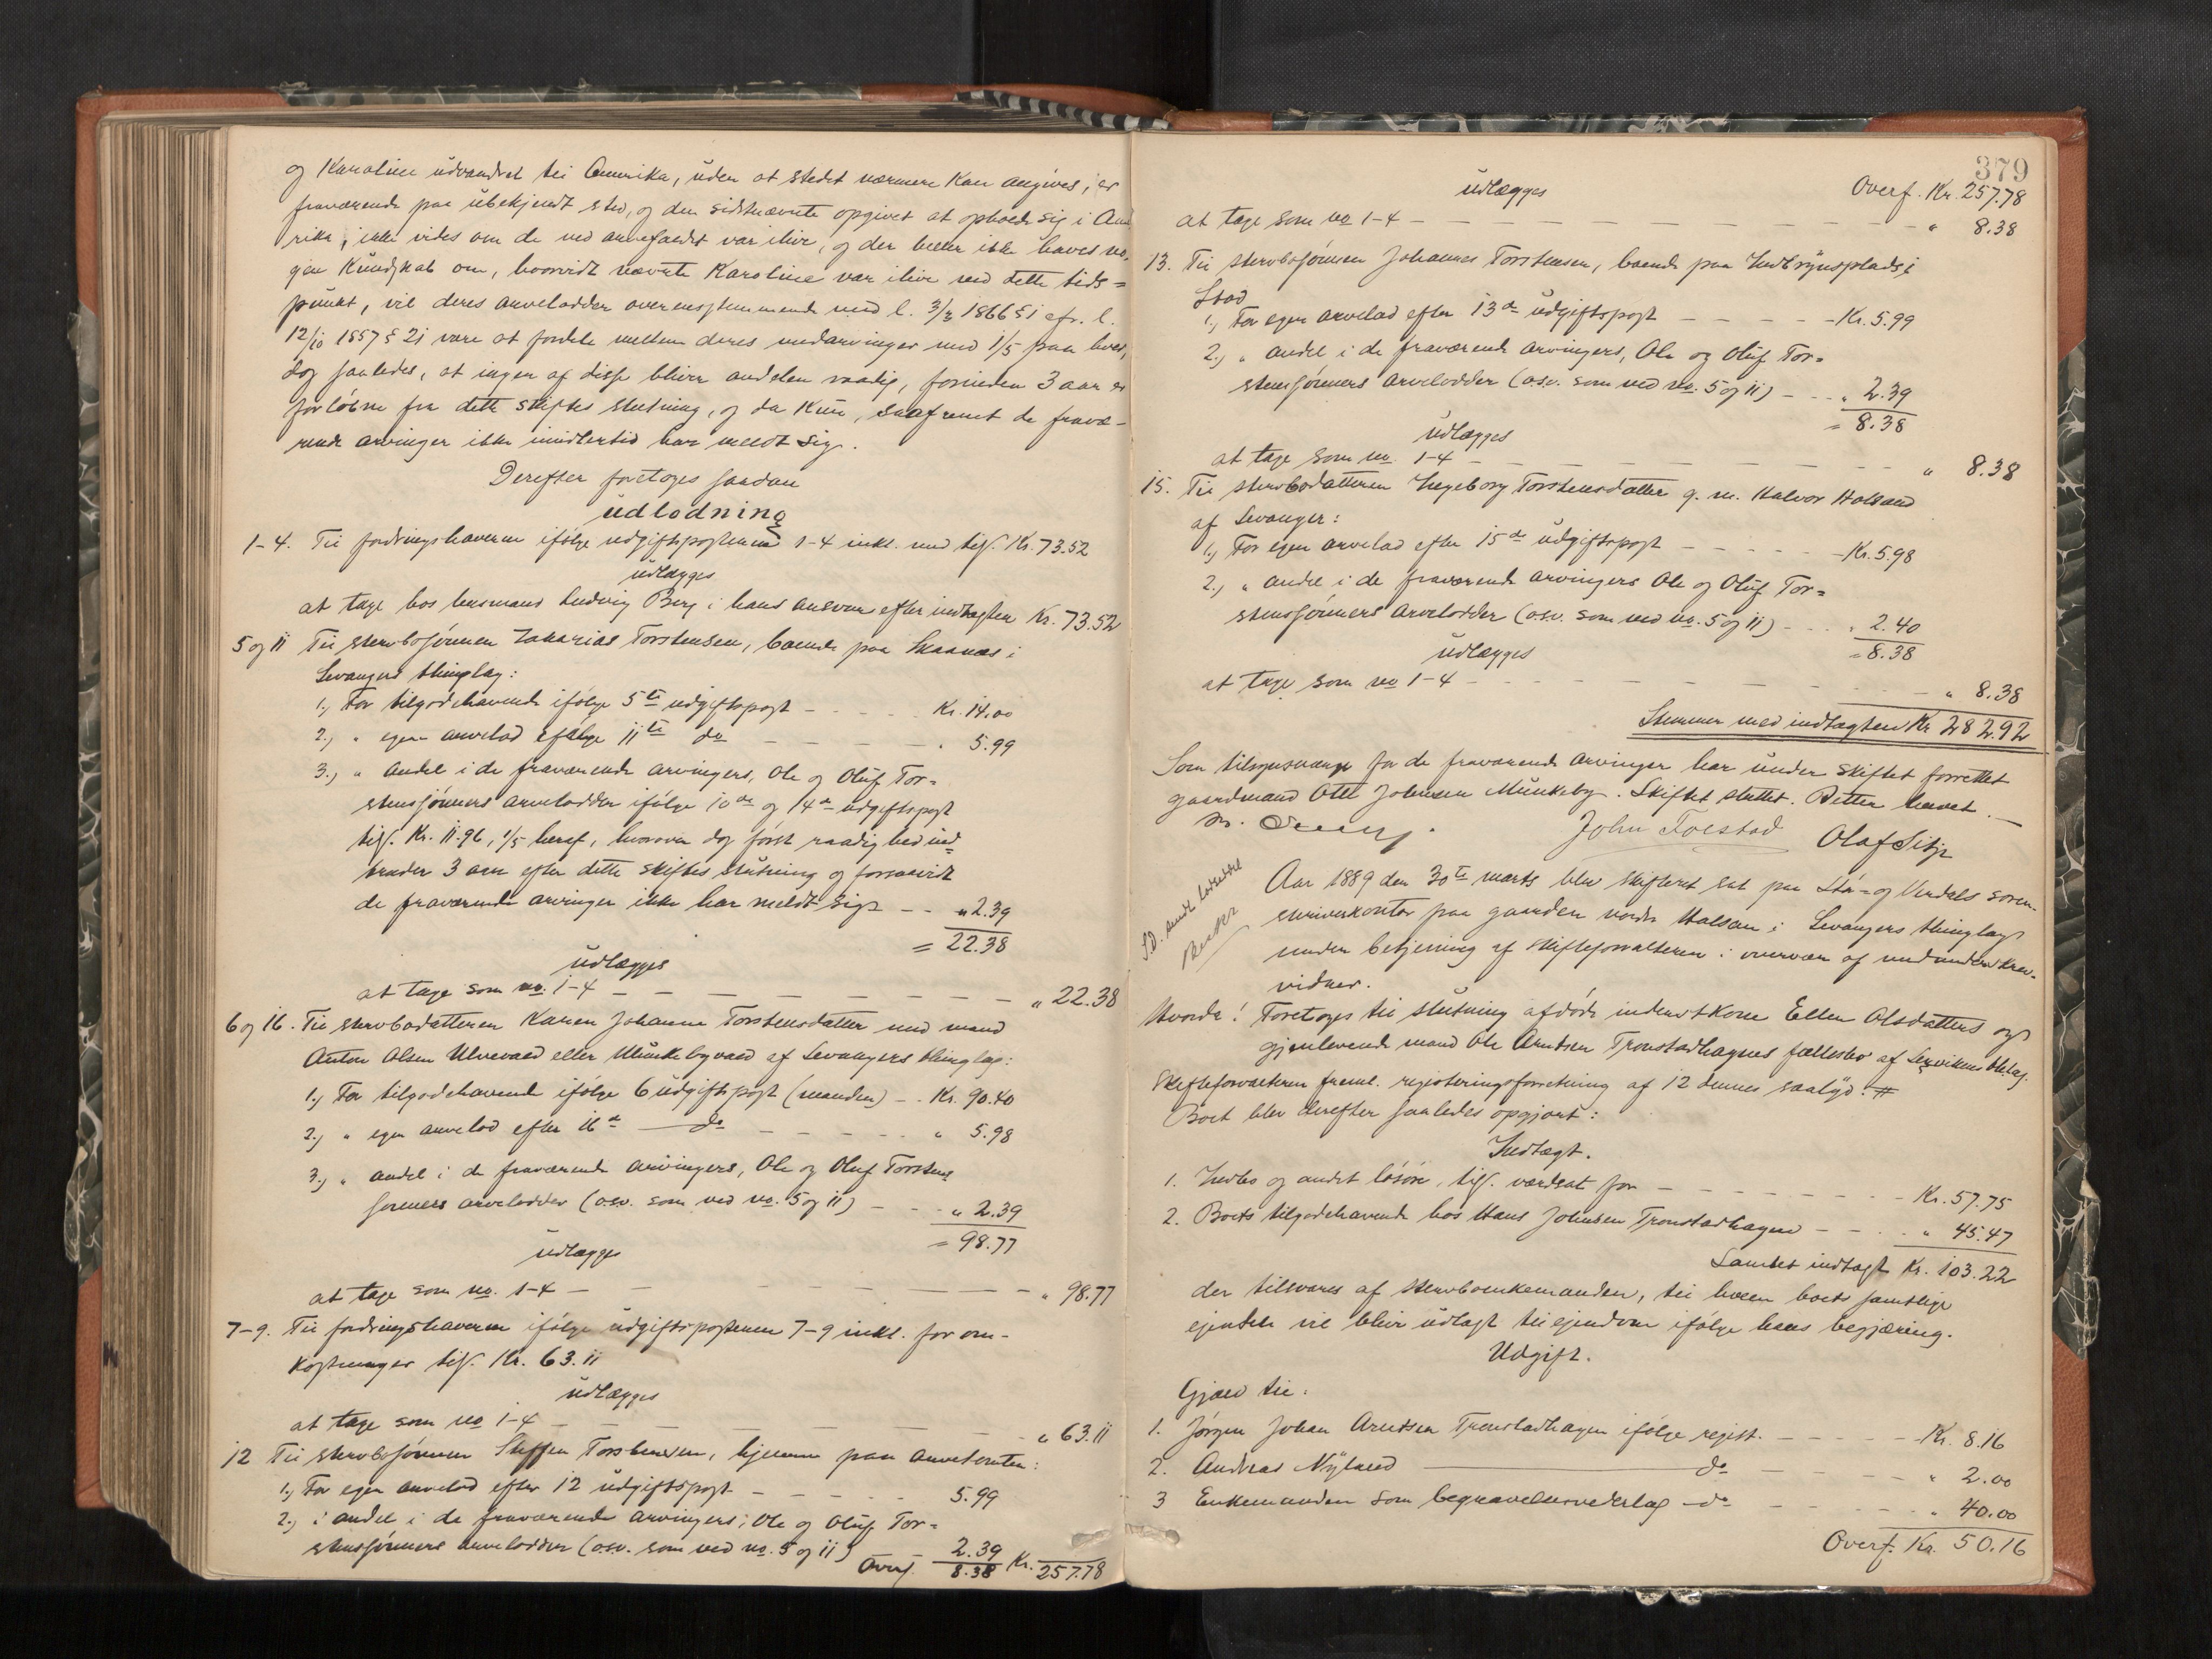 og Karoline udvandret til Amerika, uden at stedet nærmere kan angives, er
fraværende paa ubekjendt sted, og den sidstnævnte opgivet at opholde sig i Ame
rika, ikke vides om de ved arvefaldet var ilive, og der heller ikke haves no-
gen Kundskab om, hvorvidt nævnte Karoline var ilive ved dette tids=
punkt, vil deres arvelodder overensstemmende med l. 3/2 1866 § 1 cfr. l.
12/10 1857 § 21 være at fordele mellem deres medarvinger med 1/5 paa hver,
dog saaledes, at ingen af disse bliver andelen raadig, forinden 3 aar er
forløbne fra dette skiftes slutning, og da kun, saafremt de fravæ-
rende arvinger ikke imidlertid har meldt sig.
Derefter foretoges saadan
udlodning
1-4. Til fordringshaverne ifølge udgiftsposterne 1-4 inkl. med tils. Kr. 73.52
udlægges
at tage hos lensmand Ludvig Berg i hans ansvar efter indtægten Kr. 73.52
5 og 11 Til stervbosønnen Zakarias Torstensen, boende paa Skaanes i
Levangers thinglag:
1.) For tilgodehavende ifølge 5te udgiftspost - - - Kr. 14.00
2.) " egen arvelod ifølge 11te do - - - " 5.99
3.) " Andel i de fraværende arvingers, Ole og Oluf Tor=
stensønners arvelodder ifølge 10de og 14de udgiftspost
tils. Kr. 11.96, 1/5 heraf, hvorover dog først raadighed ind=
træder 3 aar efter dette skiftes slutning og forsaavidt
de fraværende arvinger ikke har meldt sig - - " 2.39
= 22.38
udlægges
at tage som no. 1-4 - - - " 22.38
6 og 16. Til stervbodatteren Karen Johanna Torstensdatter med mand
Anton Olsen Ulvevald eller Munkebyvald af Levangers thinglag:
1.) For tilgodehavende ifølge 6 udgiftspost (manden) - - Kr. 90.40
2.) " egen arvelod efter 16de do - - - " 5.98
3.) " andel i de fraværende arvingers, Ole og Oluf Torstens
sønners arvelodder (o.s.v. som ved no. 5 og 11) - - " 2.39
= 98.77
udlægges
at tage som no. 1-4 - - - " 98.77
7-9. Til fordringshaverne ifølge udgiftsposterne 7-9 inkl. for om-
kostninger tils. Kr. 63.11
udlægges
at tage som no 1-4 - - - " 63.11
12 Til stervbosønnen Steffen Torstensen, hjemme paa arvetomten:
1.) For egen arvelod efter 12 udgiftspost - - - 5.99
2.) " andel i de fraværende arvingers, Ole og Oluf Tor=
stensønners arvelodder (o.s.v. som ved no. 5 og 11) 2.39
8.38
Overf. Kr. 257.78
379
Overf. Kr. 257.78
udlægges
at tage som no 1-4 - - - " 8.38
13. Til stervbosønnen Johannes Torstensen, boende paa Indbrynsplads i
Stod
1.) For egen arvelod efter 13de udgiftspost - - - Kr. 5.99
2.) " andel i de fraværende arvingers, Ole og Oluf Tor=
stensønners arvelodder (o.s.v. som ved no. 5 og 11) - - " 2.39
= 8.38
udlægges
at tage som no. 1-4 - - - " 8.38
15. Til stervbodatteren Ingeborg Torstensdatter g. m. Halvor Halsand
af Levanger:
1.) For egen arvelod efter 15de udgiftspost - - - Kr. 5.98
2.) " andel i de fraværende arvingers Ole og Oluf Tor=
stensønners arvelodder (o.s.v. som ved no. 5 og 11) - - " 2.40
= 8.38
udlægges
at tage som no 1-4 - - - " 8.38
Stemmer med indtægten Kr. 282.92
Som tilsynsværge for de fraværende arvinger har under skiftet forrettet
gaardmand Ole Johnsen Munkeby. Skiftet sluttet. Retten hævet.
John Tolstad Olaf
Aar 1889 den 30te marts blev skifteret sat paa Stør- og Værdals soren-
skriverkontor paa gaarden nordre Halsan i Levangers thinglag
under betjening af skifteforvalteren i overvær af medunderskrevne
vidner.
Hvorda: Foretoges til slutning afdøde inderstkone Ellen Olsdatters og
gjenlevende mand Ole Arntsen Tronstadhagens fællesbo af Leksvikens thlag.
Skifteforvalteren freml. registeringsforretning af 12 dennes saalyd: #
Boet blev derefter saaledes opgjort:
Indtægt.
1. Indbo og andet løsøre, tils. værdsat for - - - Kr. 57.75
2. Boets tilgodehavende hos Hans Johnsen Tronstadhagen - - " 45.47
Samlet indtægt Kr. 103.22
der tilsvares af stervboenkemanden, til hvem boets samtlige
eiendele vil blive udlagt til ejendom ifølge hans begjæring.
Udgift.
Gjæld til:
1. Jørgen Johan Arntsen Tronstadhagen ifølge regist. - - - Kr. 8.16
2. Andreas Nyland do - - - " 2.00
3 Enkemanden som begravelsesvederlag - do - - - " 40.00
Overf. Kr. 50.16